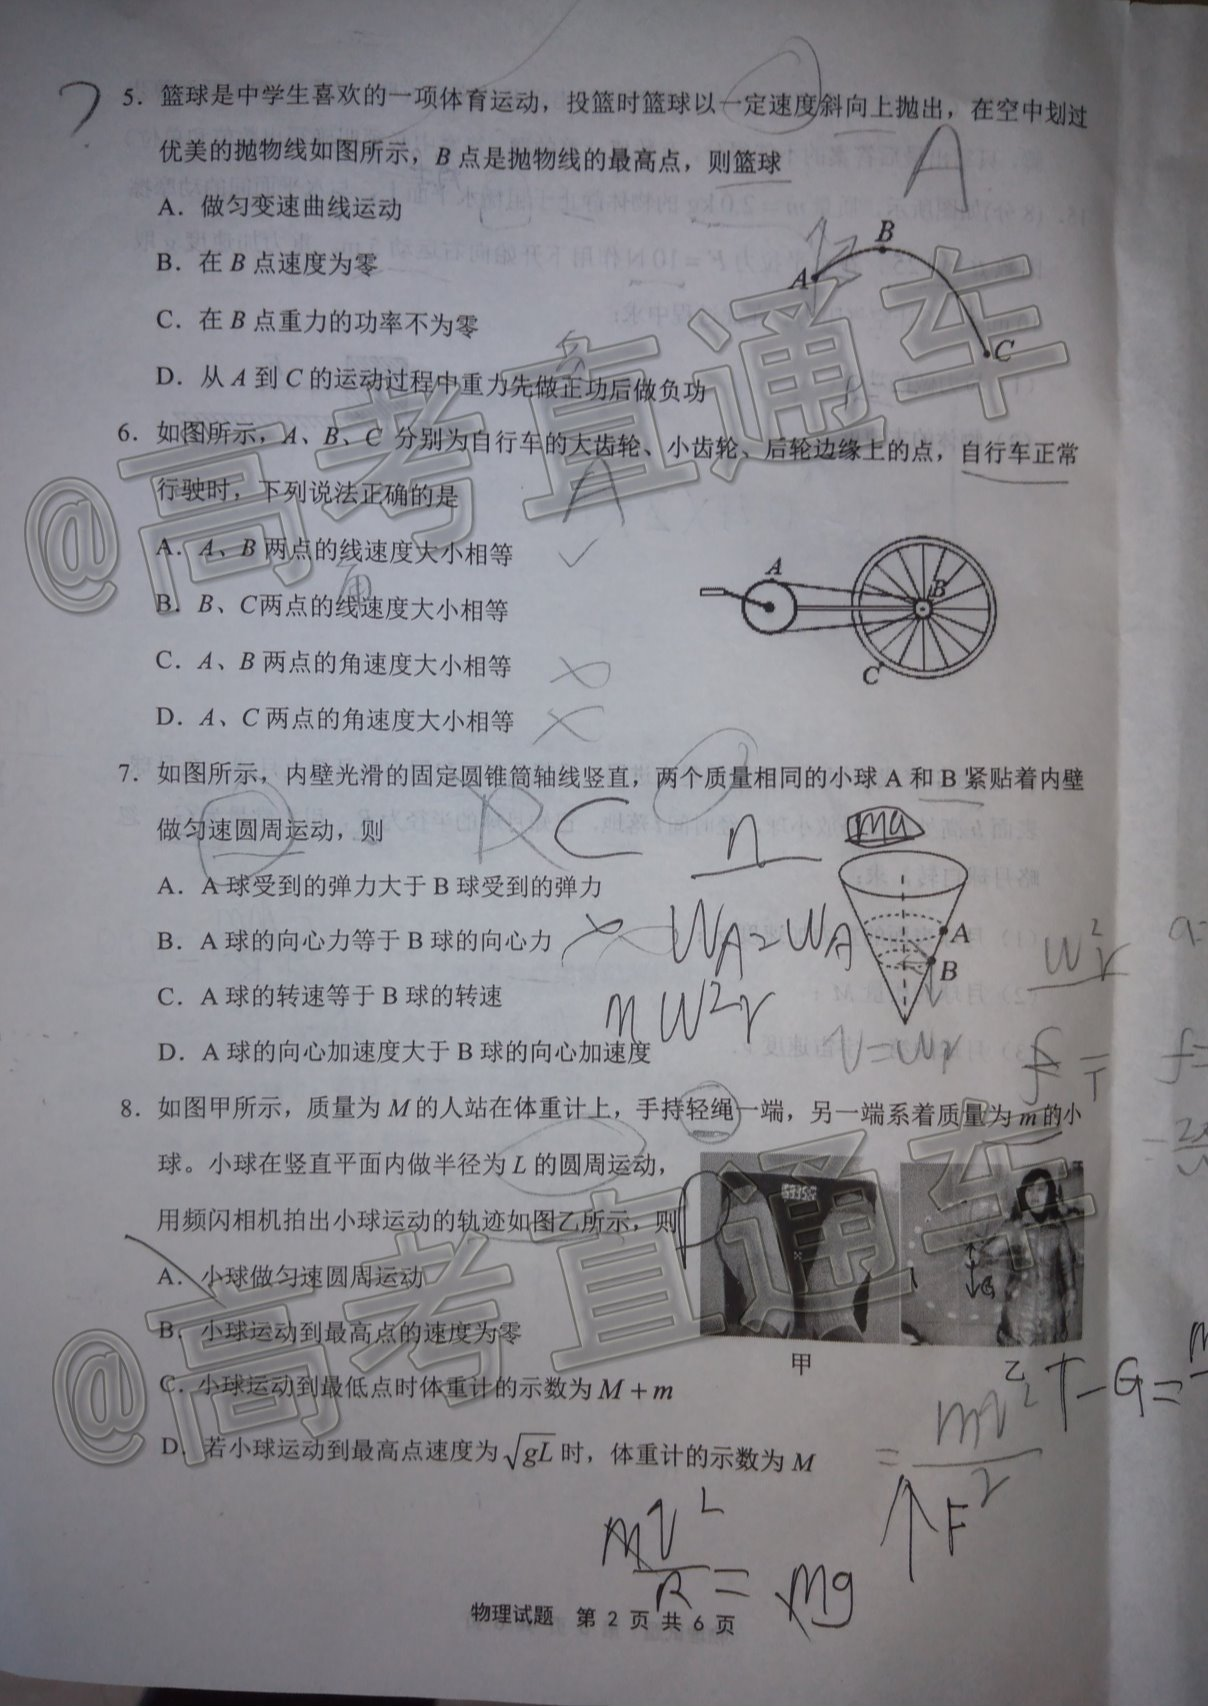 5. 篮球是中学生喜欢的一项体育运动，投篮时篮球以一定速度斜向上抛出，在空中划过
优美的抛物线如图所示，B点是抛物线的最高点，则篮球
A
A．做匀变速曲线运动
B．在B点速度为零
C．在B点重力的功率不为零
D．从A到C的运动过程中重力先做正功后做负功
A
B
C
6. 如图所示，A、B、C 分别为自行车的大齿轮、小齿轮、后轮边缘上的点，自行车正常
行驶时，下列说法正确的是
A
A．A、B两点的线速度大小相等
B．B、C两点的线速度大小相等
角
C．A、B两点的角速度大小相等
D．A、C两点的角速度大小相等
A
B
C
7. 如图所示，内壁光滑的固定圆锥筒轴线竖直，两个质量相同的小球A和B紧贴着内壁
做匀速圆周运动，则
C
n
ma
A．A球受到的弹力大于B球受到的弹力
B．A球的向心力等于B球的向心力
WA=WA
C．A球的转速等于B球的转速
D．A球的向心加速度大于B球的向心加速度
A
B
W²r
mW²r
V=Wr
8. 如图甲所示，质量为M的人站在体重计上，手持轻绳一端，另一端系着质量为m的小
球。小球在竖直平面内做半径为L的圆周运动，
用频闪相机拍出小球运动的轨迹如图乙所示，则
A．小球做匀速圆周运动
B．小球运动到最高点的速度为零
C．小球运动到最低点时体重计的示数为M+m
D．若小球运动到最高点速度为√gL时，体重计的示数为M
G
甲
乙
T-G=
=mv²/r
F
mv²/R=mg
物理试题 第 2 页 共 6 页
@高考直通车
@高考直通车